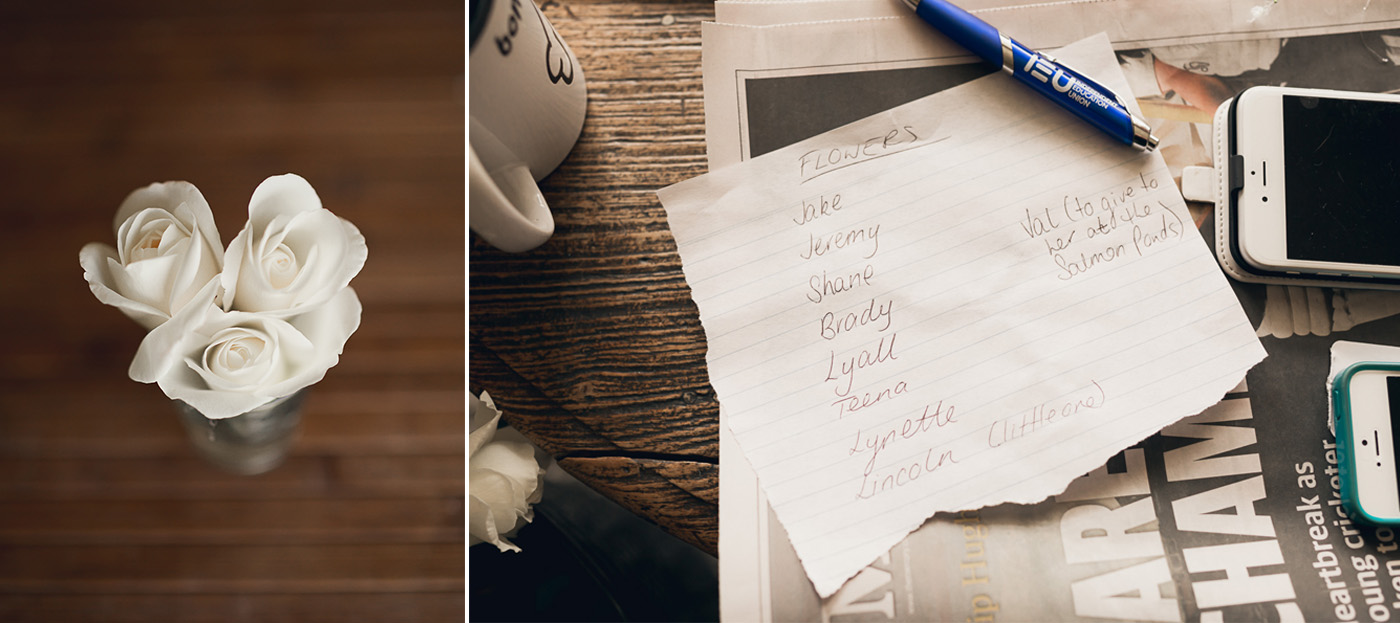 FLOWERS
Jake
Jeremy
Shane
Brady
Lyall
Teena
Lynette
Lincoln (little one)
Val (to give to
her at the
Salmon Ponds)
EU
INDEPENDENT
EDUCATION
UNION
CHAM
ARE
eartbreak as
oung cricketer